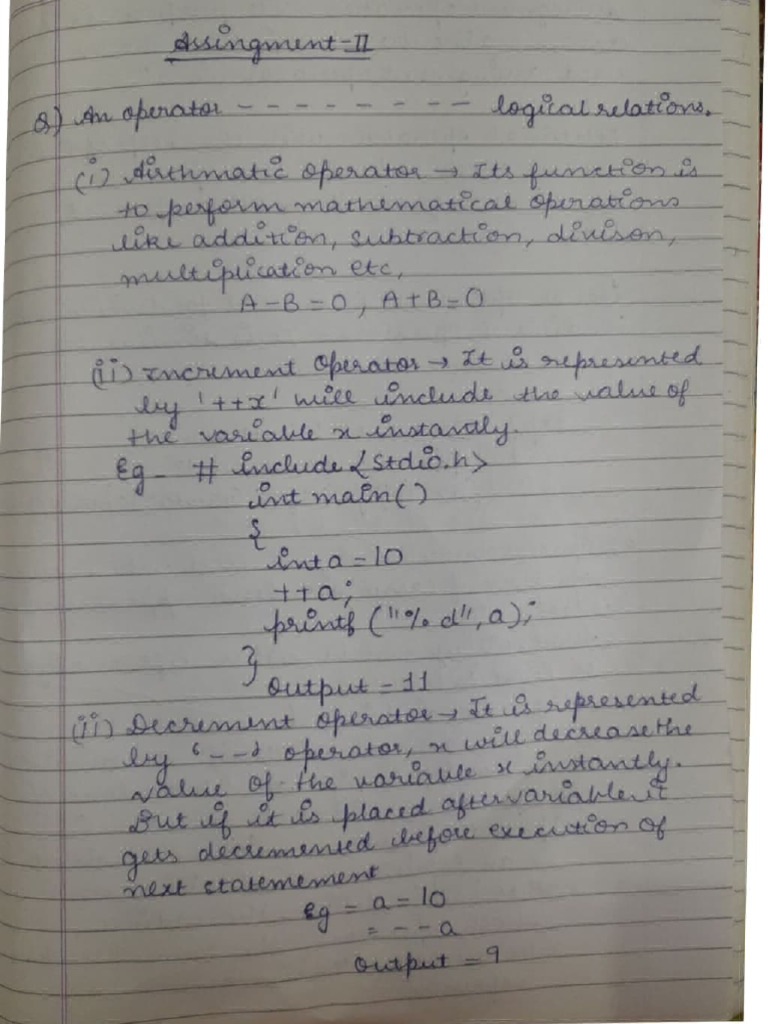 Assingment-II
Q) An operator - - - - - - - - - logical relations.
(i) Airthmatic operator → Its function is
to perform mathematical operations
like addition, subtraction, divison,
multiplication etc,
A-B=0, A+B=0
(ii) Increment operator → It is represented
by '++x' will include the value of
the variable x instantly.
Eg - # include <stdio.h>
int main()
{
int a = 10
++a;
printf ("%d", a);
}
Output = 11
(ii) Decrement operator → It is represented
by '--' operator, x will decrease the
value of the variable x instantly.
But if it is placed after variable it
gets decremented before execution of
next statemement
Eg = a = 10
= --a
Output = 9